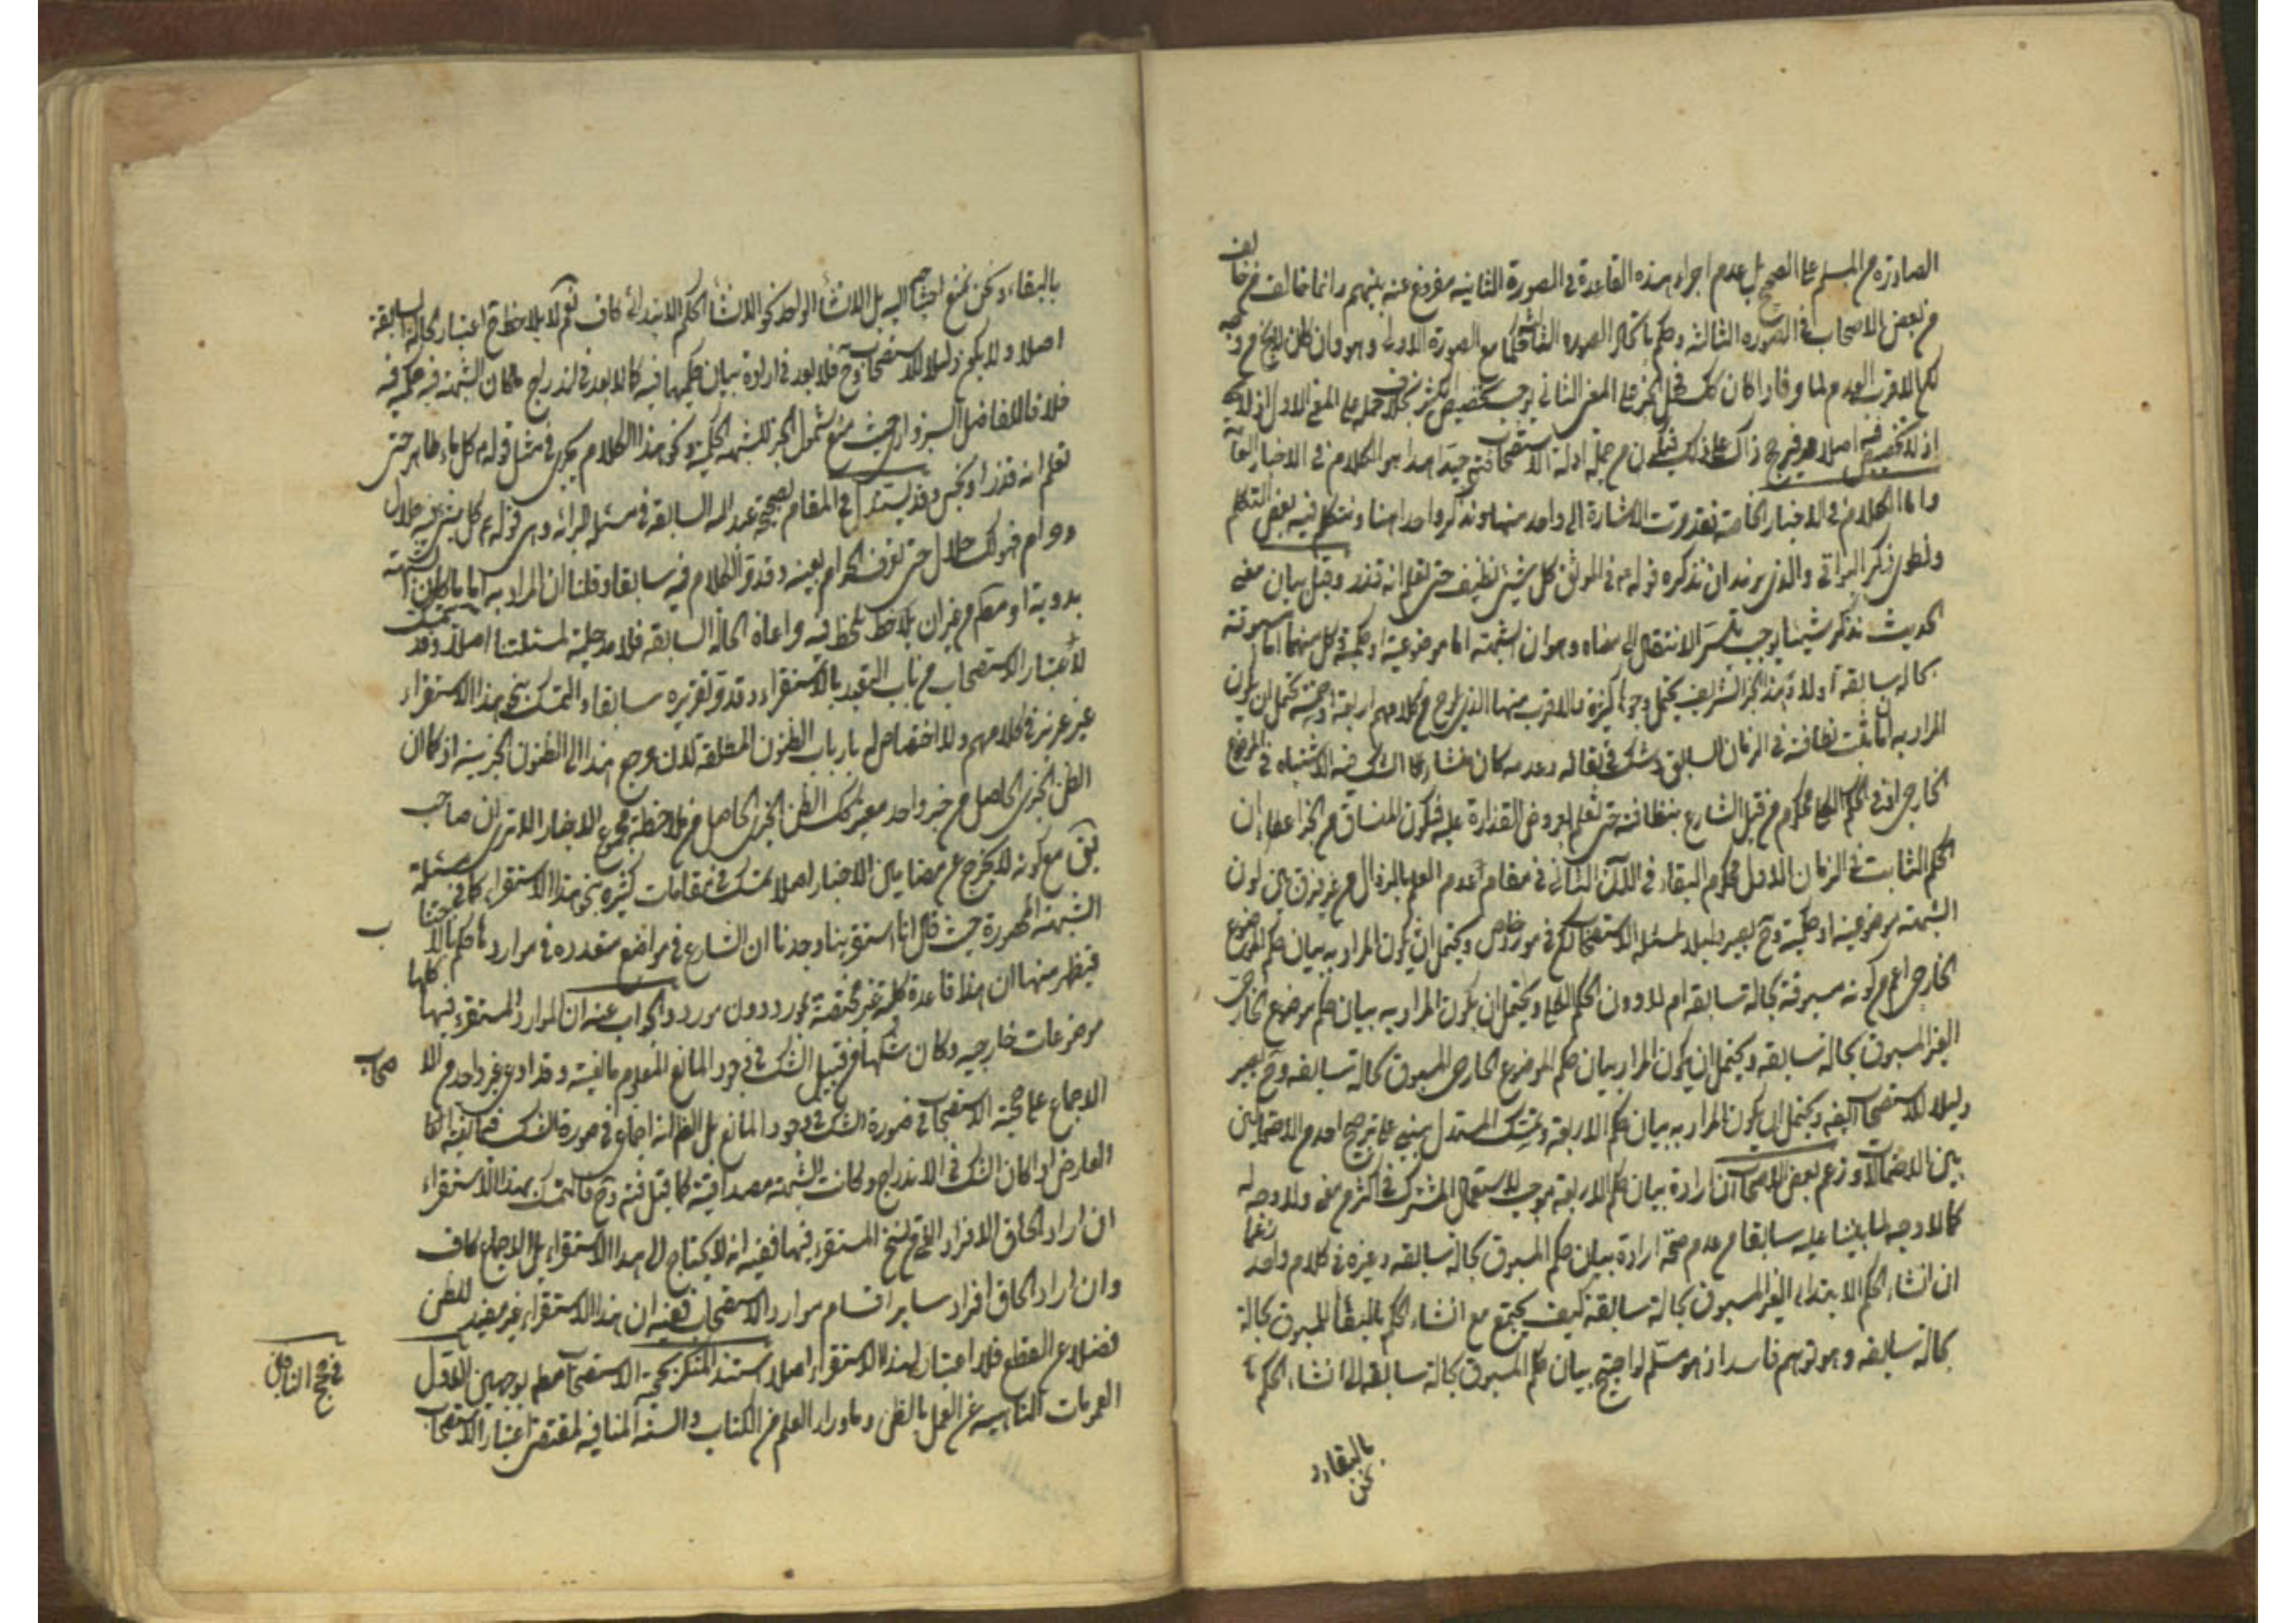 الصادرة من المسلم على الصحيح بل عدم اجراء هذه القاعدة في الصورة الثانية مفروغ عنه بينهم وانما خالف من خالف
من بعض الاصحاب في الصورة الثالثة وحكم باتحاد الصورة الثالثة حكما مع الصورة الاولى وهو وان كان لا يخ من وجه
لكن الاقرب العدم لما مر فاذا كان كك فحمل الخبر على المعنى الثاني يوجب تخصيص الاكثر بخلاف حمله على المعنى الاول
اذ لا تخصيص فيه اصلا فيرجح ذاك على ذلك فيكون من جملة ادلة الاستصحاب فتح جيدا هذا هو الكلام في الاخبار العامة
واما الكلام في الاخبار الخاصة فقد مرت الاشارة الى واحد منها ونذكر واحدا هنا ونتكلم فيه بعض التكلم
ونطوى ذكر البواقي والذي نريد ان نذكره قوله ع في الموثق كل شيئ نظيف حتى تعلم انه قذر وقبل بيان معنى
الحديث نذكر شيئا يوجب تيسر الانتقال الى معناه وهو ان الشبهة اما موضوعية او حكمية وكل منهما اما مسبوقة
بحالة سابقة او لا وهذا الخبر الشريف يحتمل وجوها كثيرة والاقرب منها الذي يلوح من كلامهم اربعة او خمسة يحتمل ان يكون
المراد به ان ما ثبت نظافته في الزمان السابق وشك في بقائه وعدمه كان منشاء الشك فيه الاشتباه في الموضوع
الخارجي او في الحكم الكلي محكوم من قبل الشارع بنظافته حتى تعلم بعروض القذارة عليه فيكون المساق من الخبر اعطاء ان
الحكم الثابت في الزمان الاول محكوم البقاء في الآن الثاني في مقام عدم العلم بالزوال من غير فرق بين كون
الشبهة موضوعية او حكمية وح يصير دليلا لمسئلة الاستصحاب لكن في مورد خاص ويحتمل ان يكون المراد به بيان حكم الموضوع
الخارجي اعم من كونه مسبوقة بحالة سابقة ام لا دون الحكم الكلي ويحتمل ان يكون المراد به بيان حكم موضوع الخارجي
الغير المسبوق بحالة سابقة ويحتمل ان يكون المراد بيان حكم الموضوع الخارجي المسبوق بحالة سابقة وح يصير
دليلا للاستصحاب ايضه ويحتمل ان يكون المراد به بيان حكم الاربعة وتمسك المستدل يبتني على ترجيح احد من الاحتمالين
بين الاحتمالات وزعم بعض الاصحاب ان ارادة بيان حكم الاربعة موجب للاستعمال المشترك في اكثر من معنى ولا وجه له
كما لا وجه لما بنينا عليه سابقا من عدم صحة ارادة بيان حكم المسبوق بحالة سابقة وغيره في كلام واحد زعما
ان انشاء الحكم الابتدائي الغير المسبوق بحالة سابقة كيف يجتمع مع انشاء الحكم بالبقاء المسبوق بحالة
بحالة سابقه وهو توهم فاسد اذ هو مسلم لو احتيج بيان حكم المسبوق بحالة سابقة الى انشاء الحكم با
بالبقاء و
نحن
بالبقاء ونحن نمنع احتياجه اليه بل الانشاء الواحد نحو الانشاء الحكم الابتدائي كاف نعم لا يلاحظ ح اعتبار الحالة السابقة
اصلا ولا يكون دليلا للاستصحاب وح فلا بعد في ارادة بيان حكمهما فيه كما لا بعد في اندراج ما كان الشبهة فيه حكمية فيه
خلافا للفاضل السبزواري حيث منع شمول الخبر للشبهة الحكمية ونحو هذا الكلام يجرى في مثل قوله ع كل ماء طاهر حتى
تعلم انه قذر او نجس وقد يستدل في المقام بصحيحة عبد الله السابقة في مسئلة البرائة وهي قوله ع كل شيئ فيه حلال
وحرام فهو لك حلال حتى تعرف الحرام بعينه وقد مر الكلام فيه سابقا وقلنا ان المراد به اما ما كان الشبهة
بدوية او معكم من غير ان يلاحظ لحظ فيه مراعاة الحالة السابقه فلا مدخلية لمسئلتنا اصلا وقد يتمسك
لاعتبار الاستصحاب من باب التعبد بالاستقراء وقد مر تقريره سابقا والتمسك بنحو هذا الاستقراء
غير عزيز في كلامهم ولا اختصاص له بارباب الظنون المطلقة لان مرجع هذا الى الظنون الخبرية اذ كما ان
الظن الخبري الحاصل من خبر واحد معتبر كك الظن الخبري الحاصل من ملاحظة مجموع الاخبار الا ترى ان صاحب
ئق مع كونه لا يخرج عن مضامين الاخبار اصلا تمسك في مقامات كثيرة بنحو هذا الاستقراء كما في مسئلة
الشبهة المحصورة حيث قال انا استقرينا وجدنا ان الشارع في مواضع متعدده في موارد ما حكم بالاجتناب
فيظهر منها ان هذا قاعدة كلية غير مختصة بمورد دون مورد والجواب عنه ان الموارد المستقرء فيها كلها
موضوعات خارجيه وكان شكها من قبيل الشك في وجود المانع المعلوم مانعيته وقد ادعى غير واحد من الاصحاب
الاجماع على حجية الاستصحاب في صورة الشك في وجود المانع بل الظ انه اجماعي في صورة الشك في مانعية
العارض اذا كان الشك في الاندراج وكانت الشبهة مصداقية كما قيل فيه وح فالتمسك بهذا الاستقراء
ان اراد الحاق الافراد التي من سنخ المستقرء فيها ففيه انه لا يحتاج الى هذا الاستقراء بل الاجماع كاف
وان اراد الحاق افراد ساير اقسام موارد الاستصحاب ففيه ان هذا الاستقراء غير مفيد للظن
فضلا عن القطع فلا اعتبار لهذا الاستقراء اصلا استند المنكر لحجية الاستصحاب مطم بوجهين الاول
العمومات الناهية عن العمل بالظن وما وراء العلم من الكتاب والسنة المنافية لمقتضى اعتبار الاستصحاب
في حجج النافين